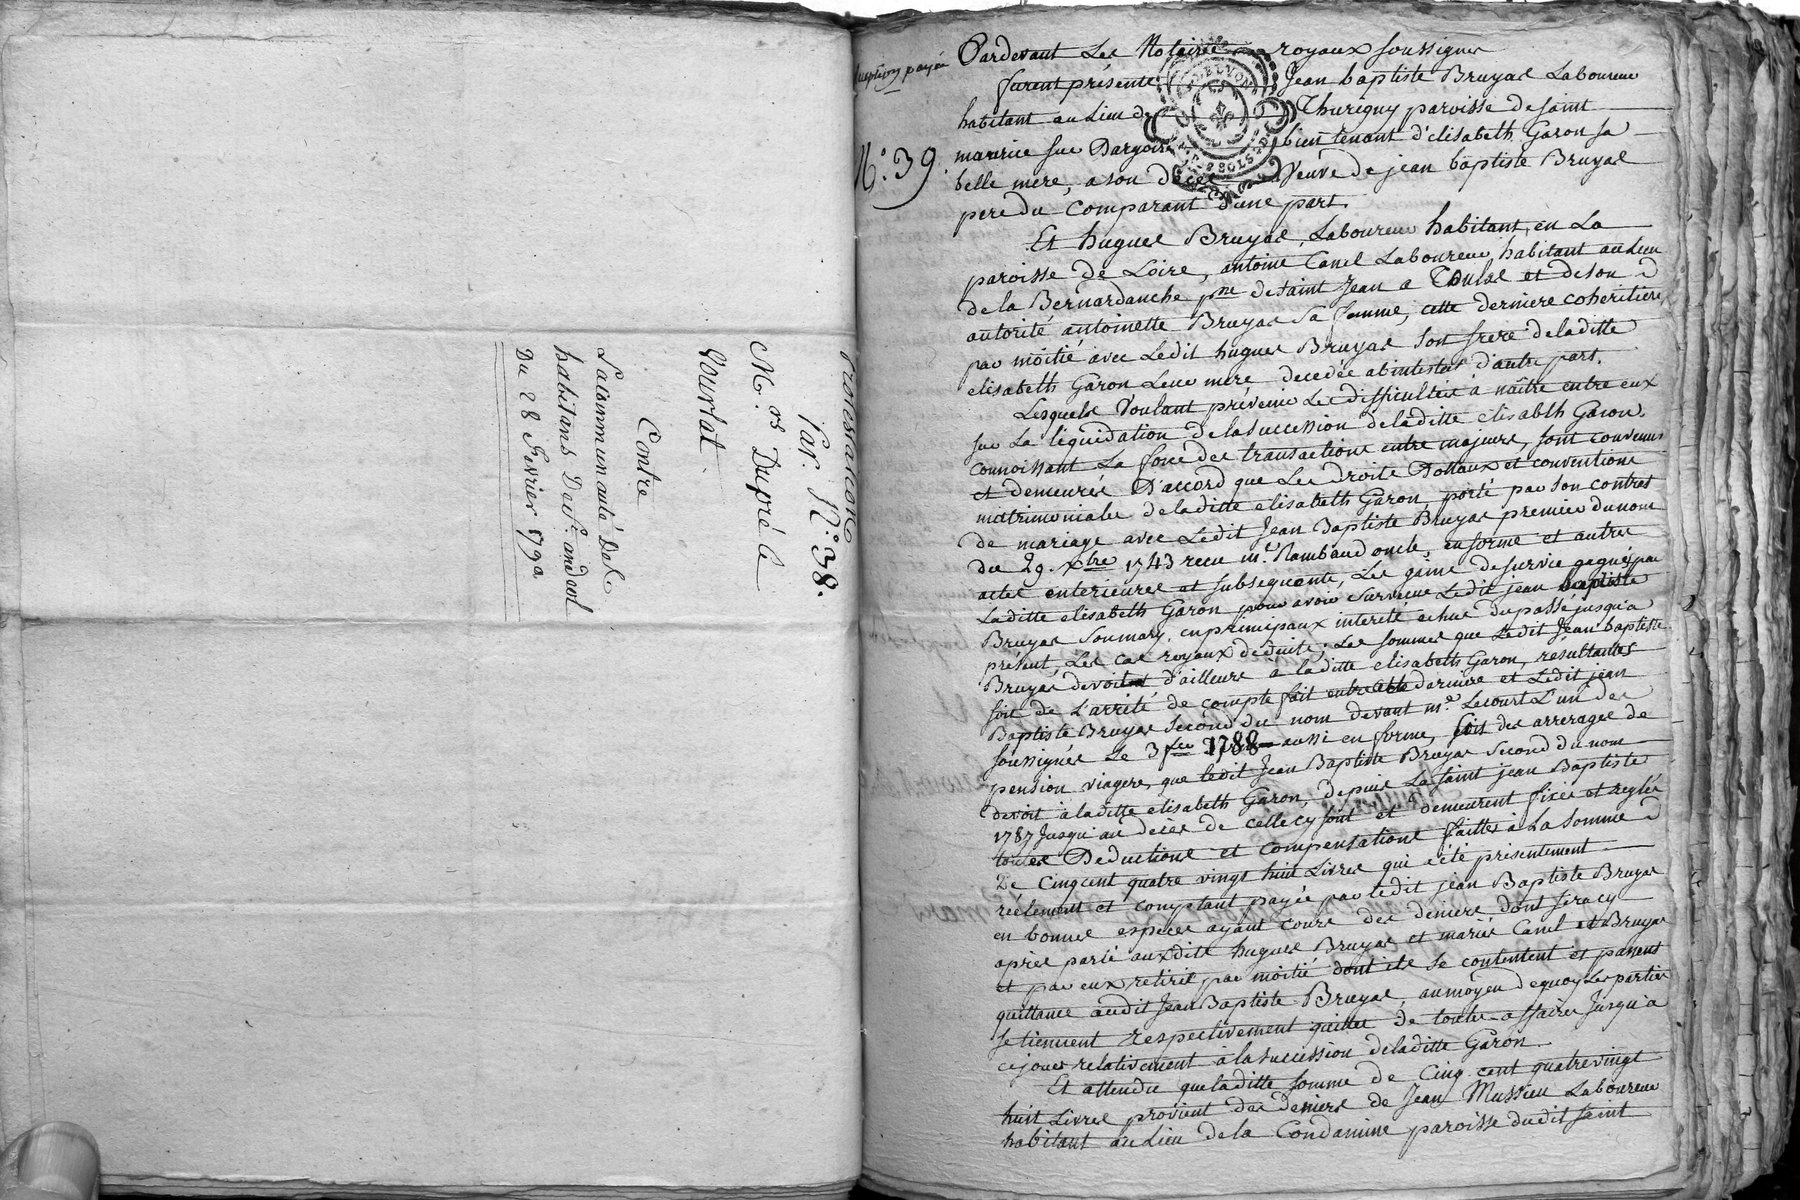 Protestation
Par. N.° 38.
M.rs Dupré le
Courtat
Contre
La communauté Des
habitans De St. andeol
Du 28 Fevrier 1790
payée
N.° 39.
Pardevant Les Notaires royaux soussignes
furent présents Jean baptiste Bruyas Laboureur
habitant au Lieu de Thurigny paroisse de saint
maurice sur Dargoire bien tenant d'elisabeth Garon sa
belle mere, a son deces Veuve de jean baptiste Bruyas
pere du comparant d'une part.
Et hugues Bruyas, Laboureur habitant en La
paroisse de Loire, antoine Canel Laboureur habitant au Lieu
de la Bernardanche psse de saint Jean a Toulas et de son
autorité antoinette Bruyas sa femme, cette derniere coheritiere
par moitié avec Ledit hugues Bruyas son frere de laditte
elisabeth Garon Leur mere decedée abintestat d'autre part.
Lesquels Voulant prevenir Les difficultés a naître entre eux
sur La liquidation de la succession de laditte elisabth Garon.
connoissant La force des transactions entre majeurs, sont convenus
et demeurés D'accord que Les droits Dottaux et conventions
matrimoniales de laditte elisabeth Garon porté par son contrat
de mariage avec Ledit Jean Baptiste Bruyas premier du nom
du 29. Xbre 1743 recu m.e Rambaud oncle, en forme et autres
actes enterieures et subsequents, Les gains de survie gagnés par
Laditte elisabeth Garon pour avoir survecue Ledit jean baptiste
Bruyas son mary, en principaux interêts echus du passé jusqu'a
présent, Les cas royaux deduits; Les sommes que Ledit Jean baptiste
Bruyas devoit d'ailleurs a laditte elisabeth Garon, resultantes
soit de L'arrêté de compte fait entre cette derniere et Ledit jean
Baptiste Bruyas second du nom devant m.e Lecourt L'un des
soussignés Le 3 1788 aussi en forme, soit des arrerages de
pension viagere, que ledit Jean Baptiste Bruyas second du nom
devoit à laditte elisabeth Garon, depuis La saint jean Baptiste
1787 jusqu'au décès de celle cy sont et demeurent fixés et reglés
toutes Deductions et compensations faittes à La somme
De Cinq cent quatre vingt huit Livres qui a été présentement
réelement et comptant payée par ledit jean Baptiste Bruyas
en bonnes especes ayant cours des deniers dont sera cy
après parlé auxdits hugues Bruyas et mariés Canel et Bruyas
et par eux retirée, par moitié dont ils se contentent et passent
quittance audit Jean Baptiste Bruyas, au moyen de quoy Les parties
se tiennent respectivement quittes de toutes affaires Jusqu'a
ce jour relativement à la succession de laditte Garon.
Et attendu que laditte somme de Cinq cent quatrevingt
huit Livres provient des deniers de Jean Mussieu Laboureur
habitant au Lieu de la Condamine paroisse dudit saint